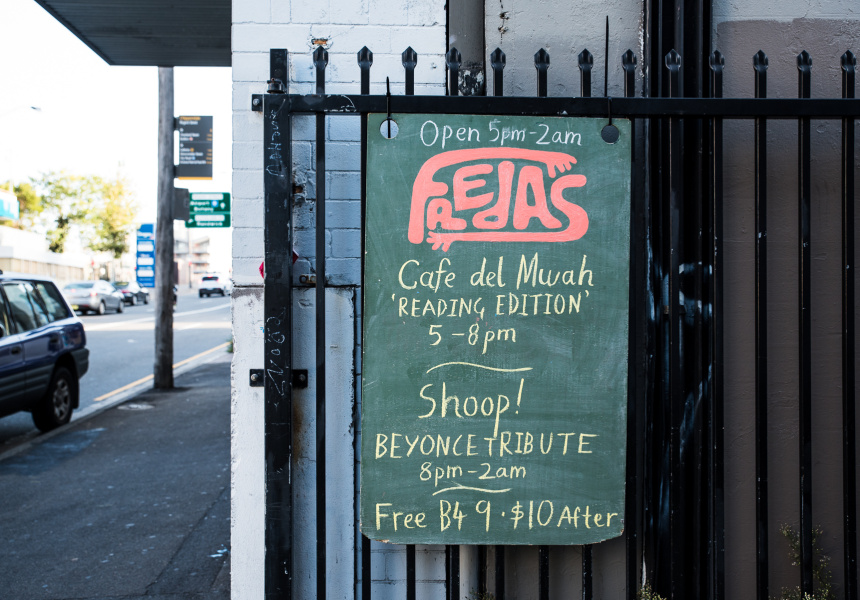 Open 5pm-2am
FREDA'S
Cafe del Mwah
'READING EDITION'
5-8pm
Shoop!
BEYONCE TRIBUTE
8pm-2am
Free B4 9 · $10 After